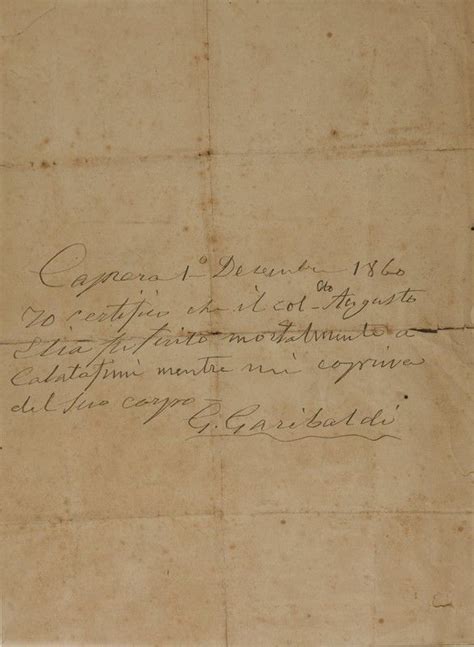 Caprera 1° Decembre 1860
Io certifico che il col.cto Augusto
Elia fu ferito mortalmente a
Calatafimi mentre mi copriva
del suo corpo
G. Garibaldi